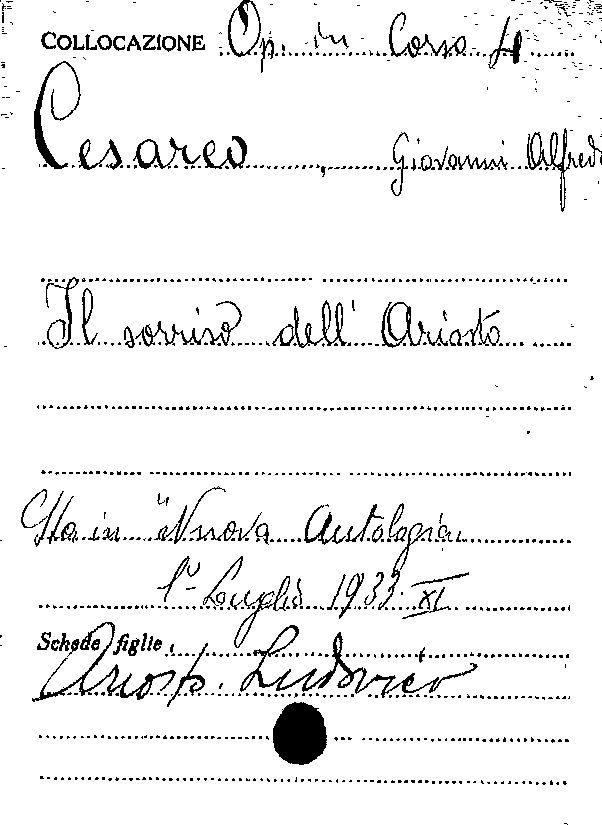 COLLOCAZIONE Op. in Corso 4
Cesareo, Giovanni Alfredo
Il sorriso dell' Ariosto
Sta in "Nuova Antologia
1º Luglio 1933-XI
Schede figlie.
Ariosto. Ludovico